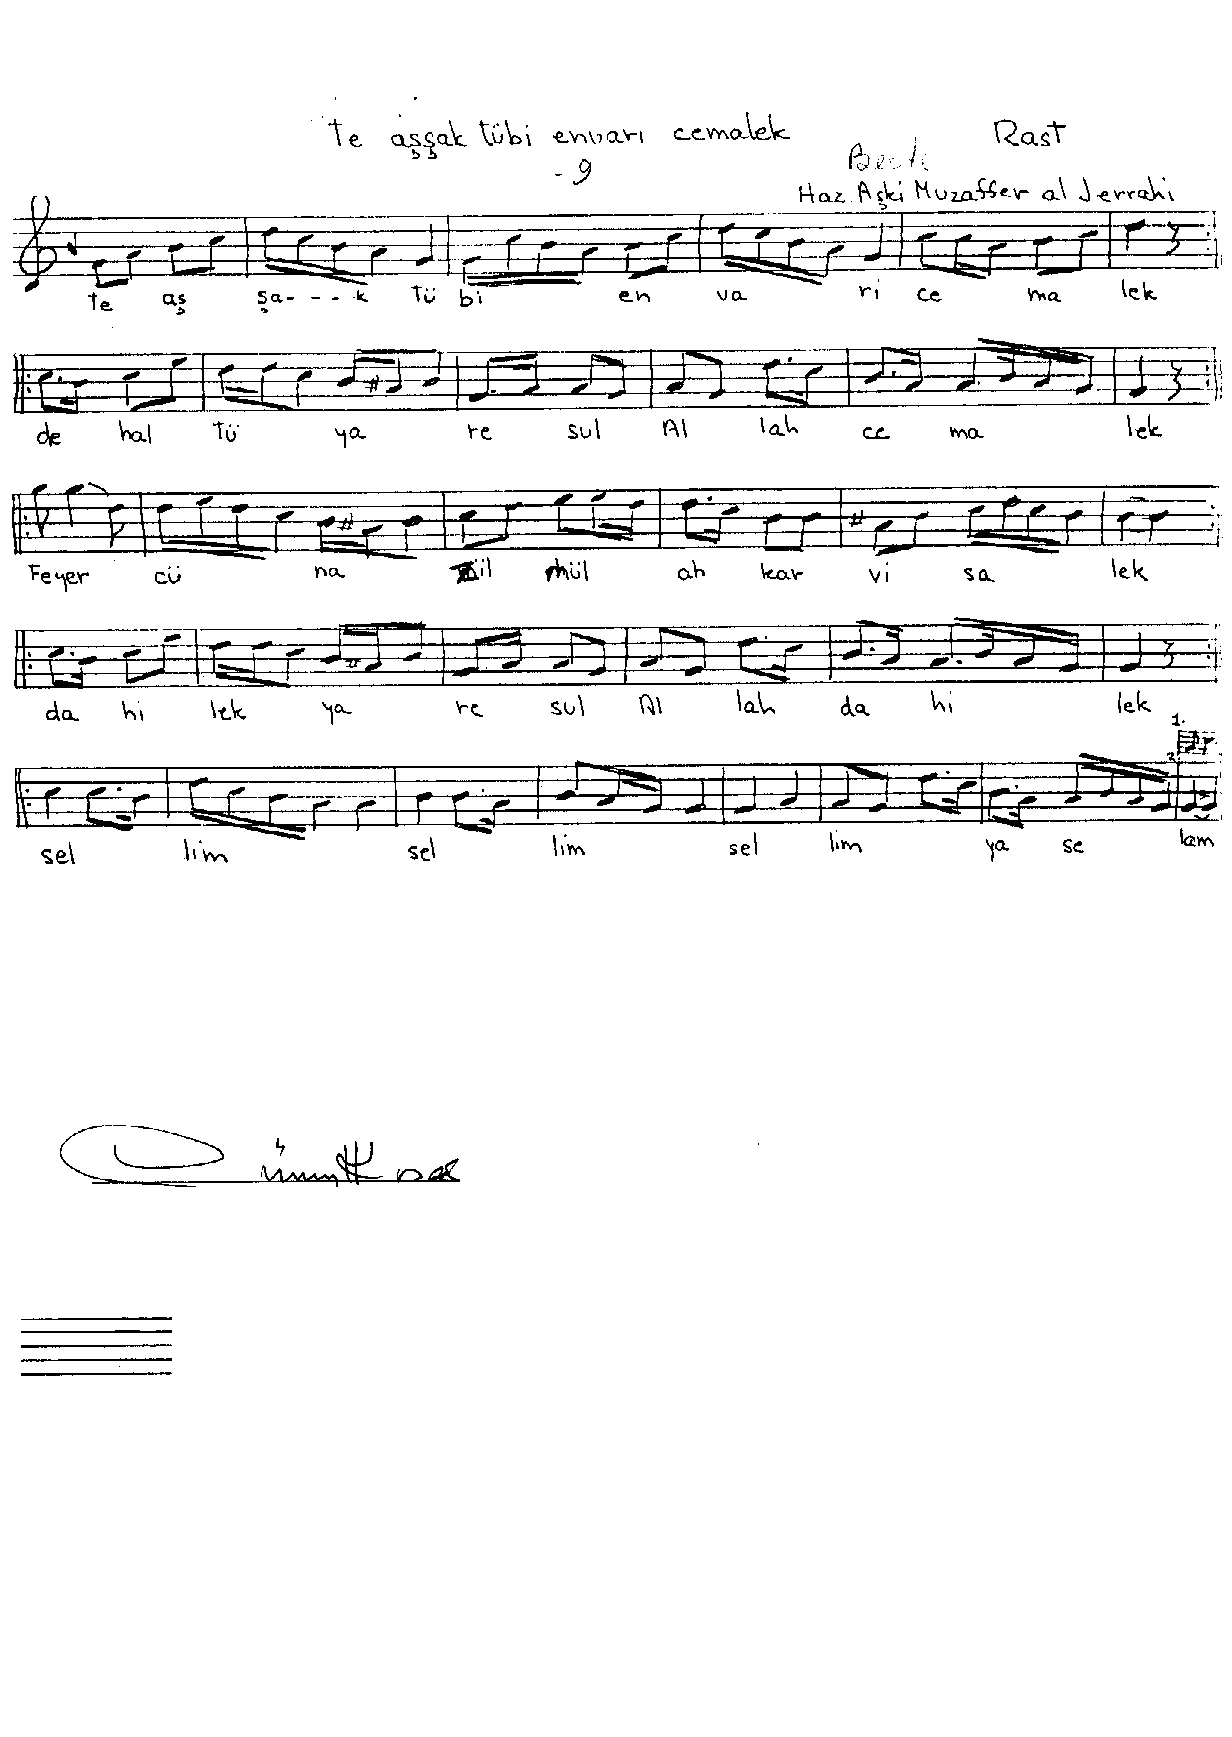 Te aşşak tübi envarı cemalek Rast
- 9
Beste
Haz Aşki Muzaffer al Jerrahi
te aş şa - - - k tü bi en va ri ce ma lek
de hal tü ya re sul Al lah ce ma lek
Feyer cü na mül ah kar vi sa lek
da hi lek ya re sul Al lah da hi lek
1.
2.
sel lim sel lim sel lim ya se lam